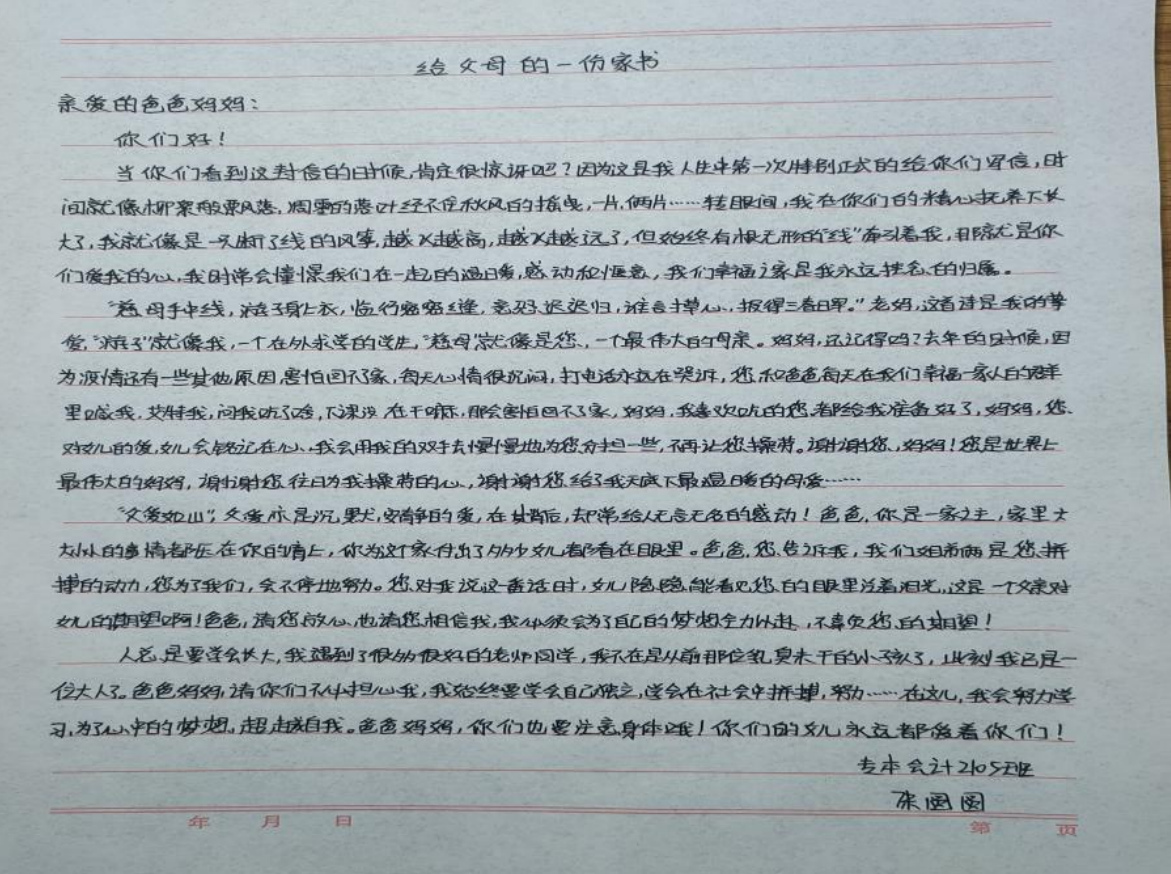 给父母的一份家书
亲爱的爸爸妈妈：
你们好！
当你们看到这封信的时候，肯定很惊讶吧？因为这是我人生中第一次特别正式的给你们写信，时
间就像柳絮般飘落，凋零的落叶经不住秋风的摇曳，一片，俩片……转眼间，我在你们的精心抚养下长
大了，我就像是一只断了线的风筝，越飞越高，越飞越远了，但始终有根无形的“线”牵引着我，那就是你
们爱我的心，我时常会憧憬我们在一起的温暖，感动和惬意，我们幸福之家是我永远挂念的归属。
“慈母手中线，游子身上衣，临行密密缝，意恐迟迟归，谁言寸草心，报得三春晖。”老妈，这首诗是我的挚
爱，“游子”就像我，一个在外求学的学生，“慈母”就像是您，一个最伟大的母亲。妈妈，还记得吗？去年的时候，因
为疫情还有一些其他原因，害怕回不了家，每天心情很沉闷，打电话永远在哭诉，您和爸爸每天在我们幸福一家人的群
里喊我，艾特我，问我吃了啥，下课没，在干嘛，那会害怕回不了家，妈妈，我喜欢吃的您都给我准备好了，妈妈，您
对女儿的爱，女儿会铭记在心，我会用我的双手去慢慢地为您分担一些，不再让您操劳。谢谢您，妈妈！您是世界上
最伟大的妈妈，谢谢您往日为我操劳的心，谢谢您给了我天底下最温暖的母爱……
“父爱如山”，父爱亦是沉默，安静的爱，在其背后，却常给人无言无名的感动！爸爸，你是一家之主，家里大
大小小的事情都压在你的肩上，你为这个家付出了多少女儿都看在眼里。爸爸，您告诉我，我们姐弟俩是您拼
搏的动力，您为了我们，会不停地努力。您对我说这番话时，女儿隐隐能看见您的眼里泛着泪光，这是一个父亲对
女儿的期望啊！爸爸，请您放心，也请您相信我，我必须会为了自己的梦想全力以赴，不辜负您的期望！
人总是要学会长大，我遇到了很多很好的老师同学，我不在是从前那位乳臭未干的小孩了，此刻我已是一
位大人了。爸爸妈妈，请你们不必担心我，我始终要学会自己独立，学会在社会中拼搏，努力……在这儿，我会努力学
习，为了心中的梦想，超越自我。爸爸妈妈，你们也要注意身体哦！你们的女儿永远都爱着你们！
专本会计2105班
张圆圆
年 月 日 第 页